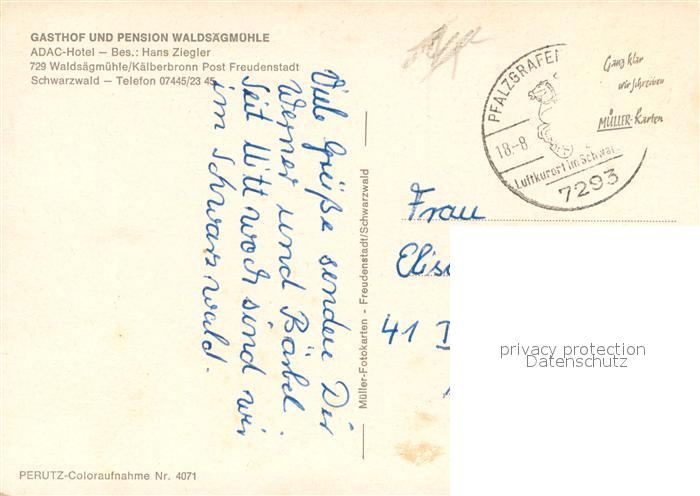 GASTHOF UND PENSION WALDSÄGMÜHLE
ADAC-Hotel — Bes.: Hans Ziegler
729 Waldsägmühle/Kälberbronn Post Freudenstadt
Schwarzwald — Telefon 07445/23 45
Viele Grüße senden Dir
Werner und Bärbel.
Seit Mittwoch sind wir
im Schwarzwald.
Müller-Fotokarten - Freudenstadt/Schwarzwald
PFALZGRAFEN
18.-8
Luftkurort im Schwarz
7293
Ganz klar
wir schreiben
MÜLLER-Karten
Frau
Elis
41 D
privacy protection
Datenschutz
PERUTZ-Coloraufnahme Nr. 4071